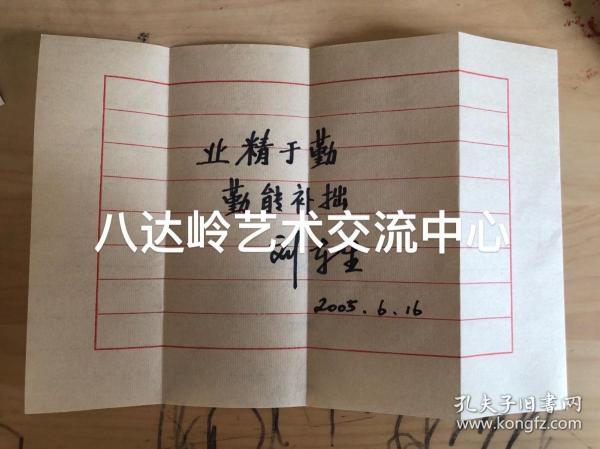 业精于勤
勤能补拙
八达岭艺术交流中心
刘
2005.6.16
孔夫子旧书网
www.kongfz.com